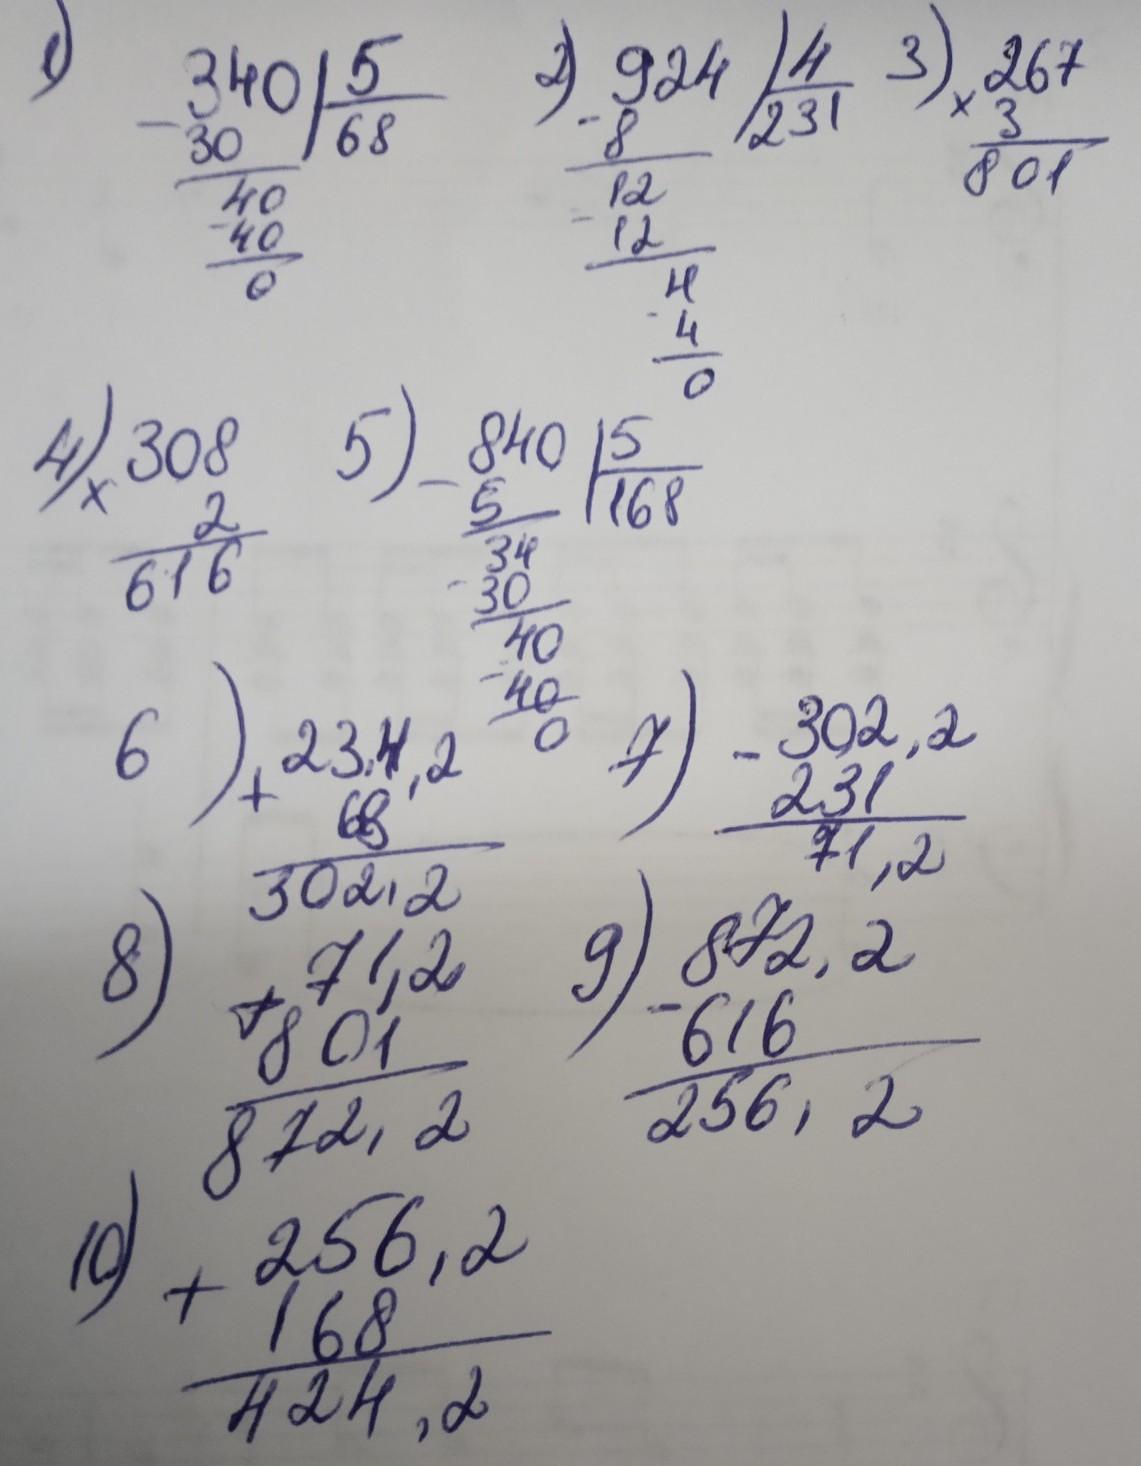 1) 340 | 5
- 30 68
40
- 40
0
2) 924 | 4
- 8 231
12
- 12
4
- 4
0
3) 267
x 3
801
4) 308
x 2
616
5) 840 | 5
- 5 168
34
- 30
40
- 40
0
6) 234,2
+ 68
302,2
7) 302,2
- 231
71,2
8) 71,2
+ 801
872,2
9) 872,2
- 616
256,2
10) 256,2
+ 168
424,2